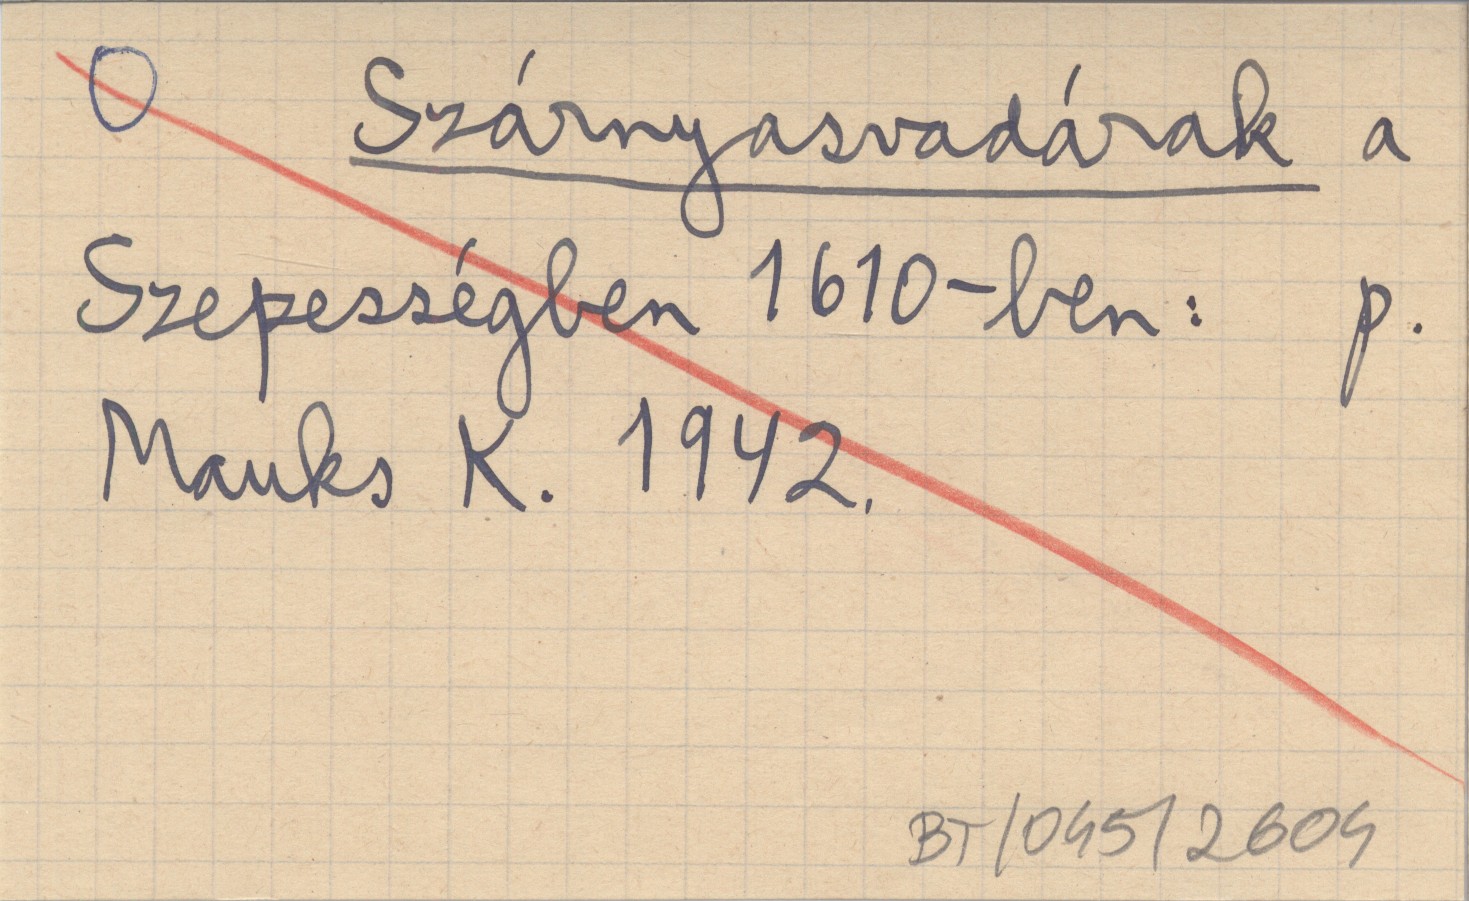 O Szárnyasvadárak a
Szepességben 1610-ben: p.
Mauks K. 1942.
BT/045/2604